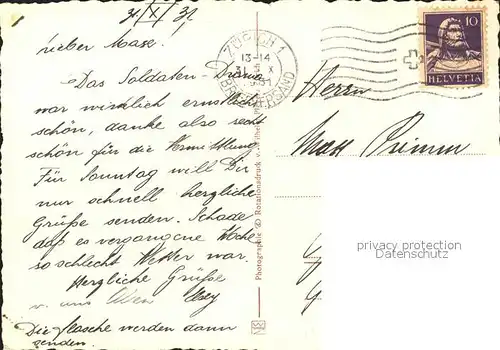 31/X/31
Lieber Max.
Das Soldaten-Drama
war wirklich ernstlich
schön, danke also recht
schön für die Vermittlung.
Für Sonntag will Dir
nur schnell herzliche
Grüße senden. Schade
daß es vergangene Woche
so schlecht Wetter war.
Herzliche Grüße
Die Masche werden dann
senden.
ZÜRICH 1
13-14
X
BRIEFVERSAND
10
HELVETIA
Herrn
Max
privacy protection
Datenschutz
Photographie & Rotationsdruck v.